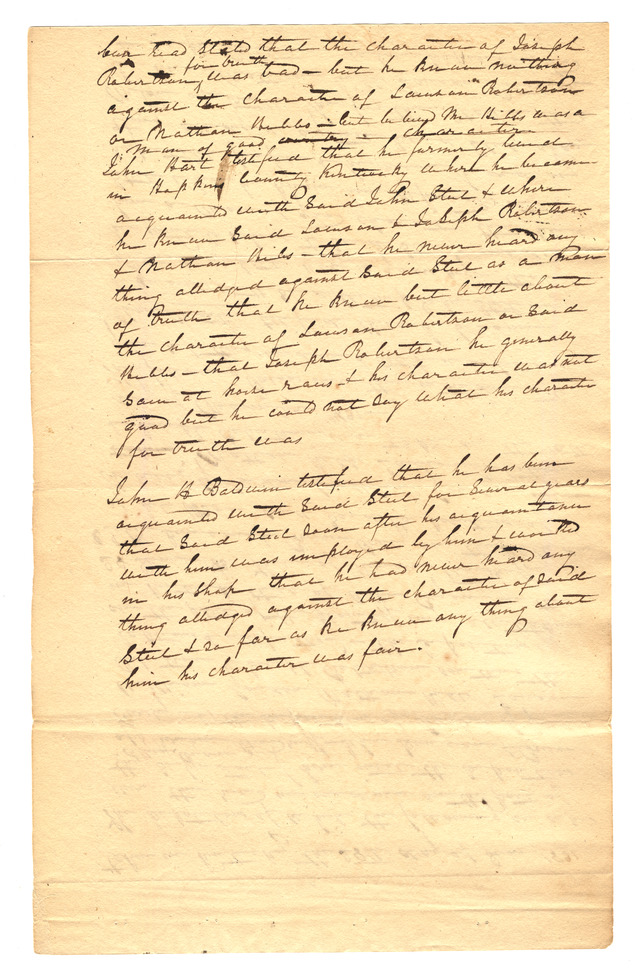 been read stated that the character of Joseph
for truth
Robertson was bad – but he knew nothing
against the character of Lawson Robertson
or Nathan Hibbs – but believed Mr Hibbs was a
man of good country – character
John Hart testified that he formerly lived
in Hopkins County Kentucky where he became
acquainted with said John Steel & where
he knew said Lawson & Joseph Robertson
& Nathan Hibs – that he never heard any
thing alledged against said Steel as a man
of truth that he knew but little about
the character of Lawson Robertson or said
Hibbs – that Joseph Robertson he generally
saw at horse races & his character was not
good but he could not say what his character
for truth was
John H Baldwin testified that he has been
acquainted with said Steel for several years
that said Steel soon after his acquaintance
with him was imployed by him & worked
in his shop that he had never heard any
thing alledged against the character of said
Steel & so far as he knew any thing about
him his character was fair.